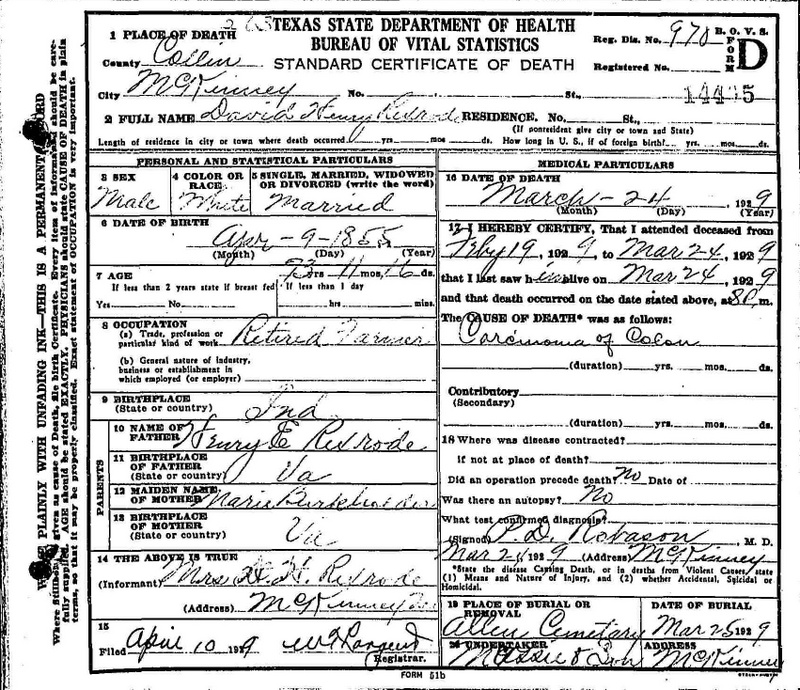 TEXAS STATE DEPARTMENT OF HEALTH
BUREAU OF VITAL STATISTICS
STANDARD CERTIFICATE OF DEATH
Reg. Dis. No. 970 B. O. V. S. FORM D
Registered No.
14435
1 PLACE OF DEATH
County Collin
City McKinney No. St.,
2 FULL NAME David Henry Rexrode RESIDENCE. No. St.,
(If nonresident give city or town and State)
Length of residence in city or town where death occurred yrs. mos. ds. How long in U. S., if of foreign birth? yrs. mos. ds.
WRITE PLAINLY WITH UNFADING INK—THIS IS A PERMANENT RECORD
Every item of information should be carefully supplied. AGE should be stated EXACTLY. PHYSICIANS should state CAUSE OF DEATH in plain terms, so that it may be properly classified. Exact statement of OCCUPATION is very important.
PERSONAL AND STATISTICAL PARTICULARS
3 SEX Male
4 COLOR OR RACE White
5 SINGLE, MARRIED, WIDOWED OR DIVORCED (write the word) Married
6 DATE OF BIRTH
Apr - 9 - 1855
(Month) (Day) (Year)
7 AGE 73 yrs 11 mos. 16 ds.
If less than 2 years state if breast fed If less than 1 day
Yes No hrs. mins.
8 OCCUPATION
(a) Trade, profession or particular kind of work Retired Farmer
(b) General nature of industry, business or establishment in which employed (or employer)
9 BIRTHPLACE (State or country) Ind
PARENTS
10 NAME OF FATHER Henry E Rexrode
11 BIRTHPLACE OF FATHER (State or country) Va
12 MAIDEN NAME OF MOTHER Marie Burkholder
13 BIRTHPLACE OF MOTHER (State or country) Va
14 THE ABOVE IS TRUE
(Informant) Mrs D. H. Rexrode
(Address) McKinney Tex
15
Filed April 10 1929
Registrar.
MEDICAL PARTICULARS
16 DATE OF DEATH
March - 24, 1929
(Month) (Day) (Year)
17 I HEREBY CERTIFY, That I attended deceased from
Feby 19, 1929, to Mar 24, 1929
that I last saw him alive on Mar 24, 1929
and that death occurred on the date stated above, at 8 m.
The CAUSE OF DEATH* was as follows:
Carcinoma of Colon
(duration) yrs. mos. ds.
Contributory
(Secondary)
(duration) yrs. mos. ds.
18 Where was disease contracted?
If not at place of death?
Did an operation precede death? No Date of
Was there an autopsy? No
What test confirmed diagnosis?
(Signed) P. D. Robason, M. D.
1929 (Address) McKinney
*State the disease Causing Death, or in deaths from Violent Causes, state
(1) Means and Nature of Injury, and (2) whether Accidental, Suicidal or
Homicidal.
19 PLACE OF BURIAL OR REMOVAL Allen Cemetary
DATE OF BURIAL Mar 25 1929
20 UNDERTAKER Massie & Son
ADDRESS McKinney
FORM 51b